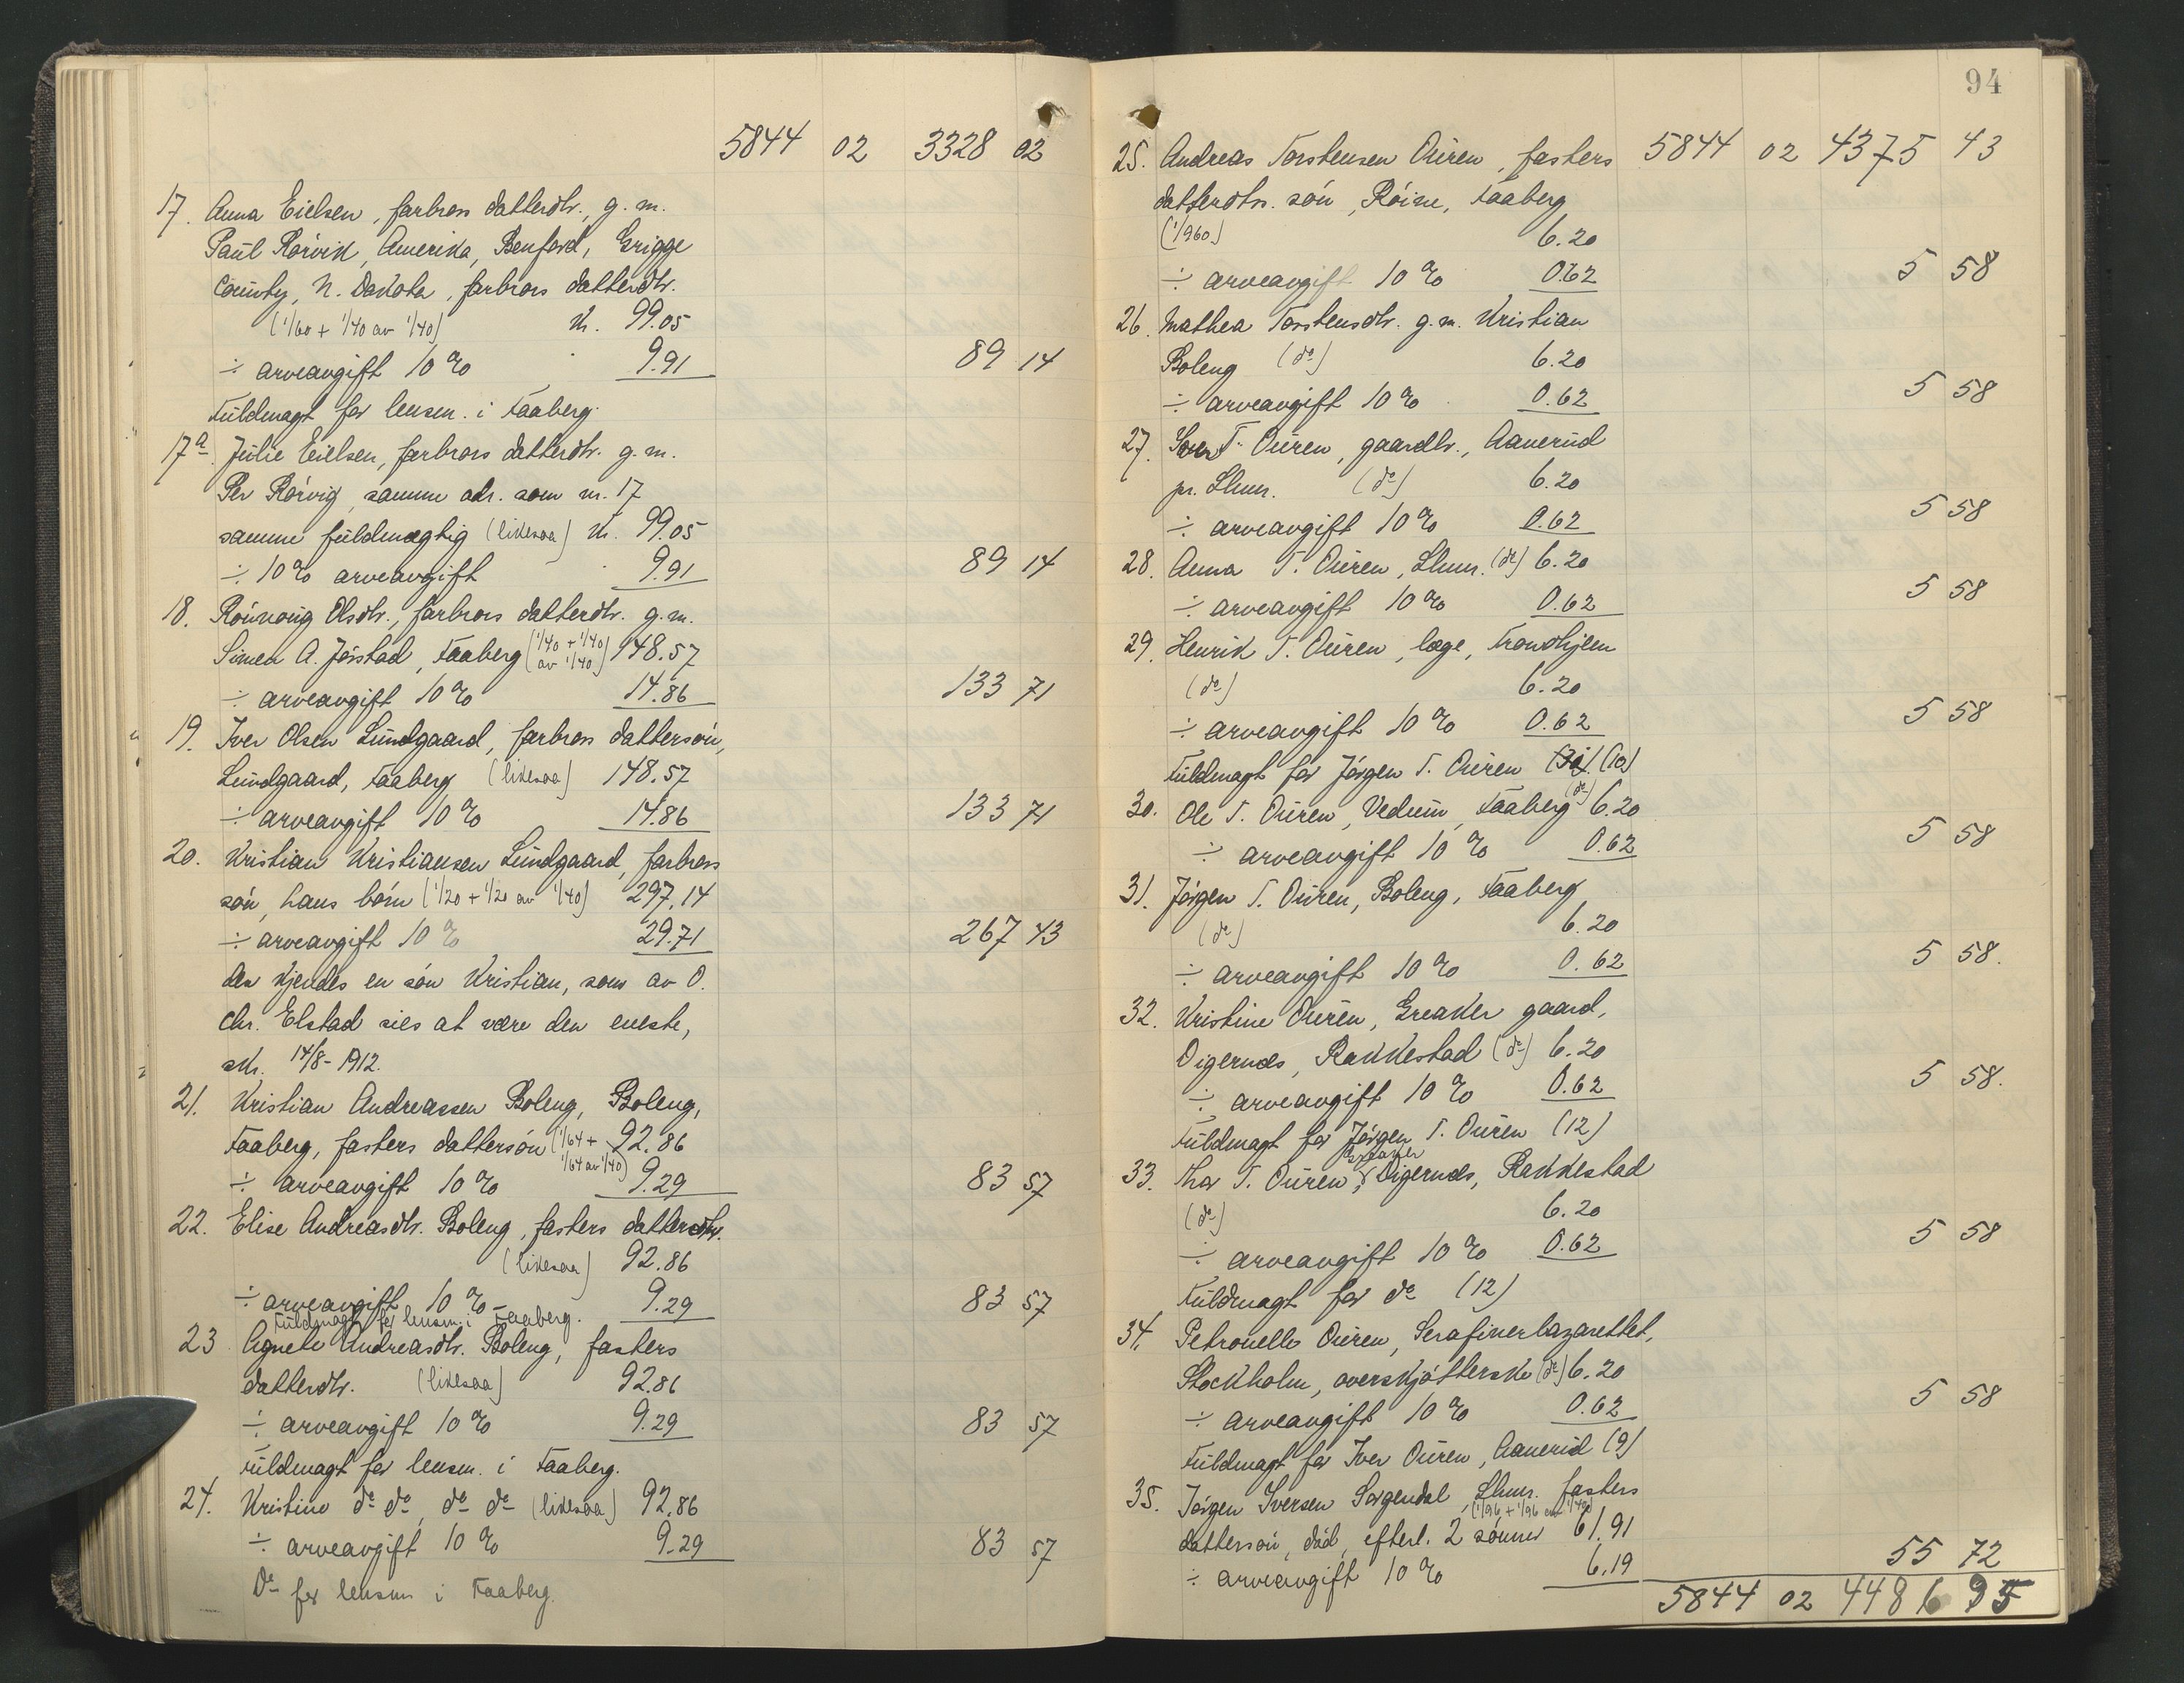 5844 02 3328 02
17. Anna Eielsen, farbrors datterdtr., g. m.
Paul Rörvik, Amerika, Benford, Grigge
County, N. Dakota, farbrors datterdtr.
(1/60 + 1/40 av 1/40) Kr. 99.05
÷ arveavgift 10 % 9.91 89 14
Fuldmagt for lensm. i Faaberg.
17a. Julie Eielsen, farbrors datterdtr. g. m.
Per Rörvig, samme adr. som nr. 17
samme fuldmægtig (likesaa) Kr. 99.05
÷ 10 % arveavgift 9.91 89 14
18. Rönnoug Olsdtr., farbrors datterdtr. g. m.
Simen A. Jörstad, Faaberg (1/40 + 1/40 av 1/40) 148.57
÷ arveavgift 10 % 14.86 133 71
19. Iver Olsen Lundgaard, farbrors dattersön,
Lundgaard, Faaberg (likesaa) 148.57
÷ arveavgift 10 % 14.86 133 71
20. Kristian Kristiansen Lundgaard, farbrors
sön, hans börn (1/20 + 1/20 av 1/40) 297.14
÷ arveavgift 10 % 29.71 267 43
der kjendes en sön Kristian, som av O.
Chr. Elstad sies at være den eneste,
skr. 14/8 - 1912.
21. Kristian Andreassen Boleng, Boleng,
Faaberg, fasters dattersön (1/64 + 1/64 av 1/40) 92.86
÷ arveavgift 10 % 9.29 83 57
22. Elise Andreasdtr. Boleng, fasters datterdtr.
(likesaa) 92.86
÷ arveavgift 10 % 9.29 83 57
Fuldmagt for lensm. i Faaberg.
23 Agnete Andreasdtr. Boleng, fasters
datterdtr. (likesaa) 92.86
÷ arveavgift 10 % 9.29 83 57
Fuldmagt for lensm. i Faaberg.
24. Kristine do do, do do (likesaa) 92.86
÷ arveavgift 10 % 9.29 83 57
Do for lensm i Faaberg.
94
25. Andreas Torstensen Ouren, fasters 5844 02 4375 43
datterdtrs. sön, Röine, Faaberg
(1/960) 6.20
÷ arveavgift 10 % 0.62 5 58
26. Mathea Torstensdtr. g. m. Kristian
Boleng (do) 6.20
÷ arveavgift 10 % 0.62 5 58
27. Iver T. Ouren, gaardbr., Aanerud
pr. Lhmr. (do) 6.20
÷ arveavgift 10 % 0.62 5 58
28. Anna T. Ouren, Lhmr. (do) 6.20
÷ arveavgift 10 % 0.62 5 58
29. Henrik T. Ouren, læge, Trondhjem
(do) 6.20
÷ arveavgift 10 % 0.62 5 58
Fuldmagt for Jörgen T. Ouren (10)
30. Ole T. Ouren, Vedum, Faaberg (do) 6.20
÷ arveavgift 10 % 0.62 5 58
31. Jörgen T. Ouren, Boleng, Faaberg
(do) 6.20
÷ arveavgift 10 % 0.62 5 58.
32. Kristine Ouren, Greaker gaard,
Digernes, Rakkestad (do) 6.20
÷ arveavgift 10 % 0.62 5 58.
Fuldmagt for Jörgen T. Ouren (12)
33. Thor T. Ouren, Greaker Digernes, Rakkestad
(do) 6.20
÷ arveavgift 10 % 0.62 5 58
Fuldmagt for do (12)
34. Petronelle Ouren, Serafinerlazarettet,
Stockholm, overskjötterske (do) 6.20
÷ arveavgift 10 % 0.62 5 58
Fuldmagt for Iver Ouren, Aanerud (9)
35. Jörgen Iversen Sorgendal, Lhmr. fasters
(1/96 + 1/96 av 1/40)
dattersön, död, efterl. 2 sönner 61.91
÷ arveavgift 10 % 6.19 55 72
5844 02 4486 95